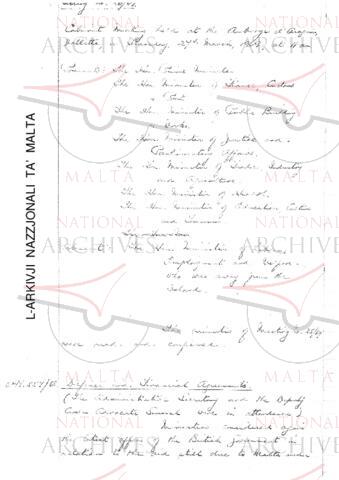 Cabinet Meeting held at the Auberge d'Aragon,
Valletta, Thursday, 2nd March, at
Present: The Hon. Prime Minister
The Hon. Minister of Finance, Customs
& Port
The Hon. Minister of Public Building
& Works
The Hon. Minister of Justice and
Parliamentary Affairs
The Hon. Minister of Trade, Industry
and Agriculture
The Hon. Minister of Health
The Hon. Minister of Education, Culture
and Tourism
The Hon. Minister of
Employment and Welfare
who was away from the
Island.
The minutes of Meeting
were read and confirmed.
Defence and Financial Agreements
(The Administrative Secretary and the Deputy
Crown Advocate General were in attendance)
Ministers considered again
the latest offer of the British Government in
relation to the aid still due to Malta under
L-ARKIVJI NAZZJONALI TA' MALTA
NATIONAL
ARCHIVES
MALTA